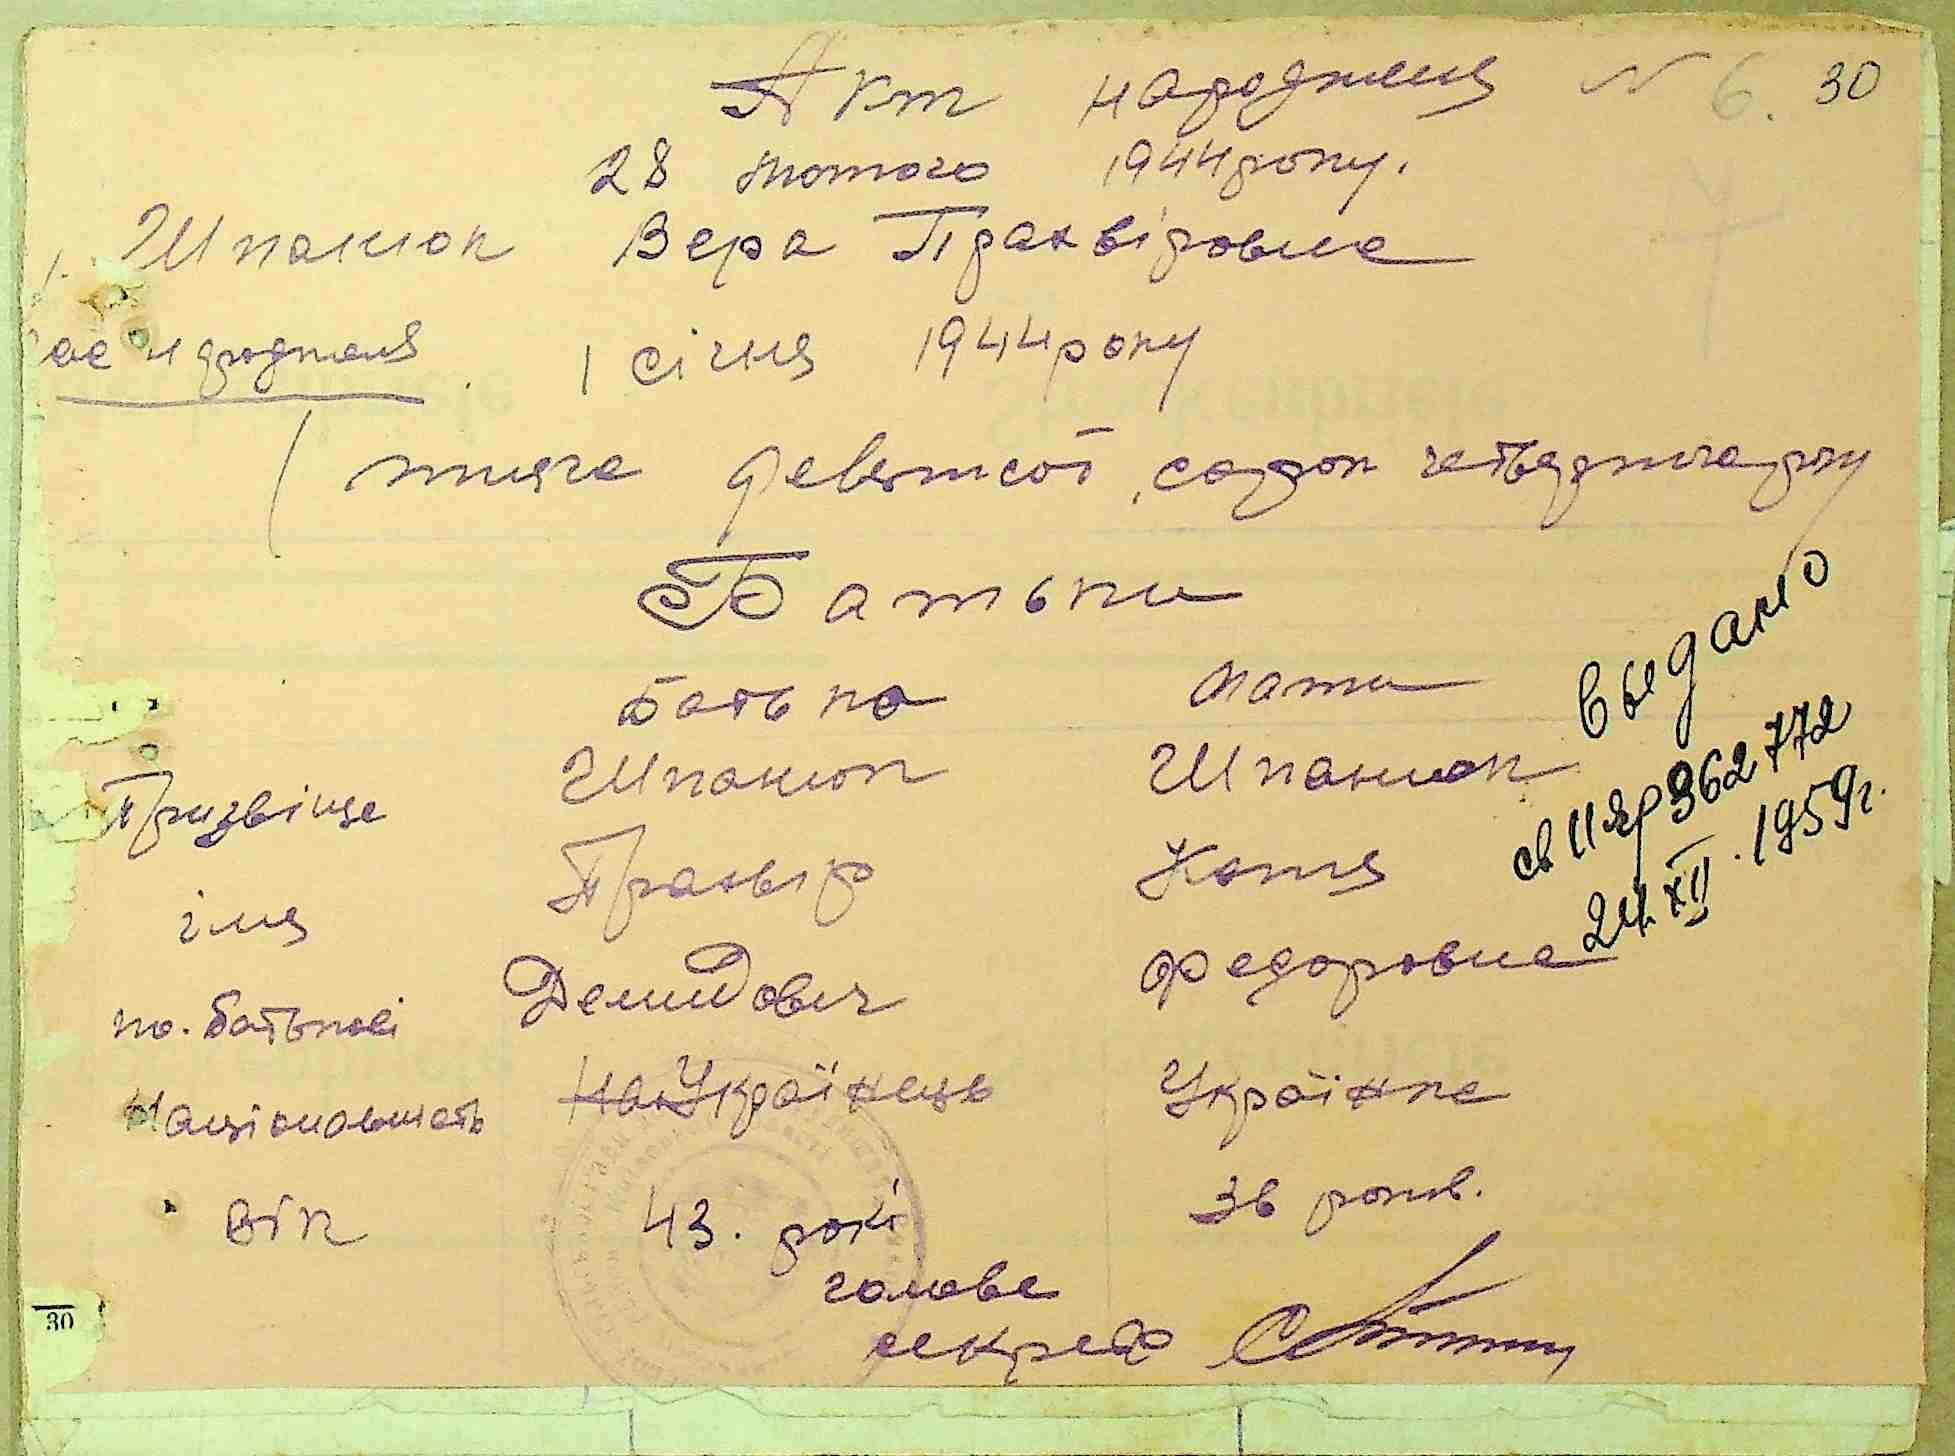 Акт народження № 6. 30
28 лютого 1944 року.
1. Шпанюк Вера Пранвіровна
час народження 1 січня 1944 року
( тисяча девятсот сорок четвертого року
Батьки
Батько Мати
Призвіще Шпанюк Шпанюк
імя Пранвір Катя
по. батькові Демидович Федоровна
Національність На Українець Українка
Вік 43. рокі 36 років.
голова
секрет
Выдано
св II ЯР 362772
24. XII. 1959г.
30